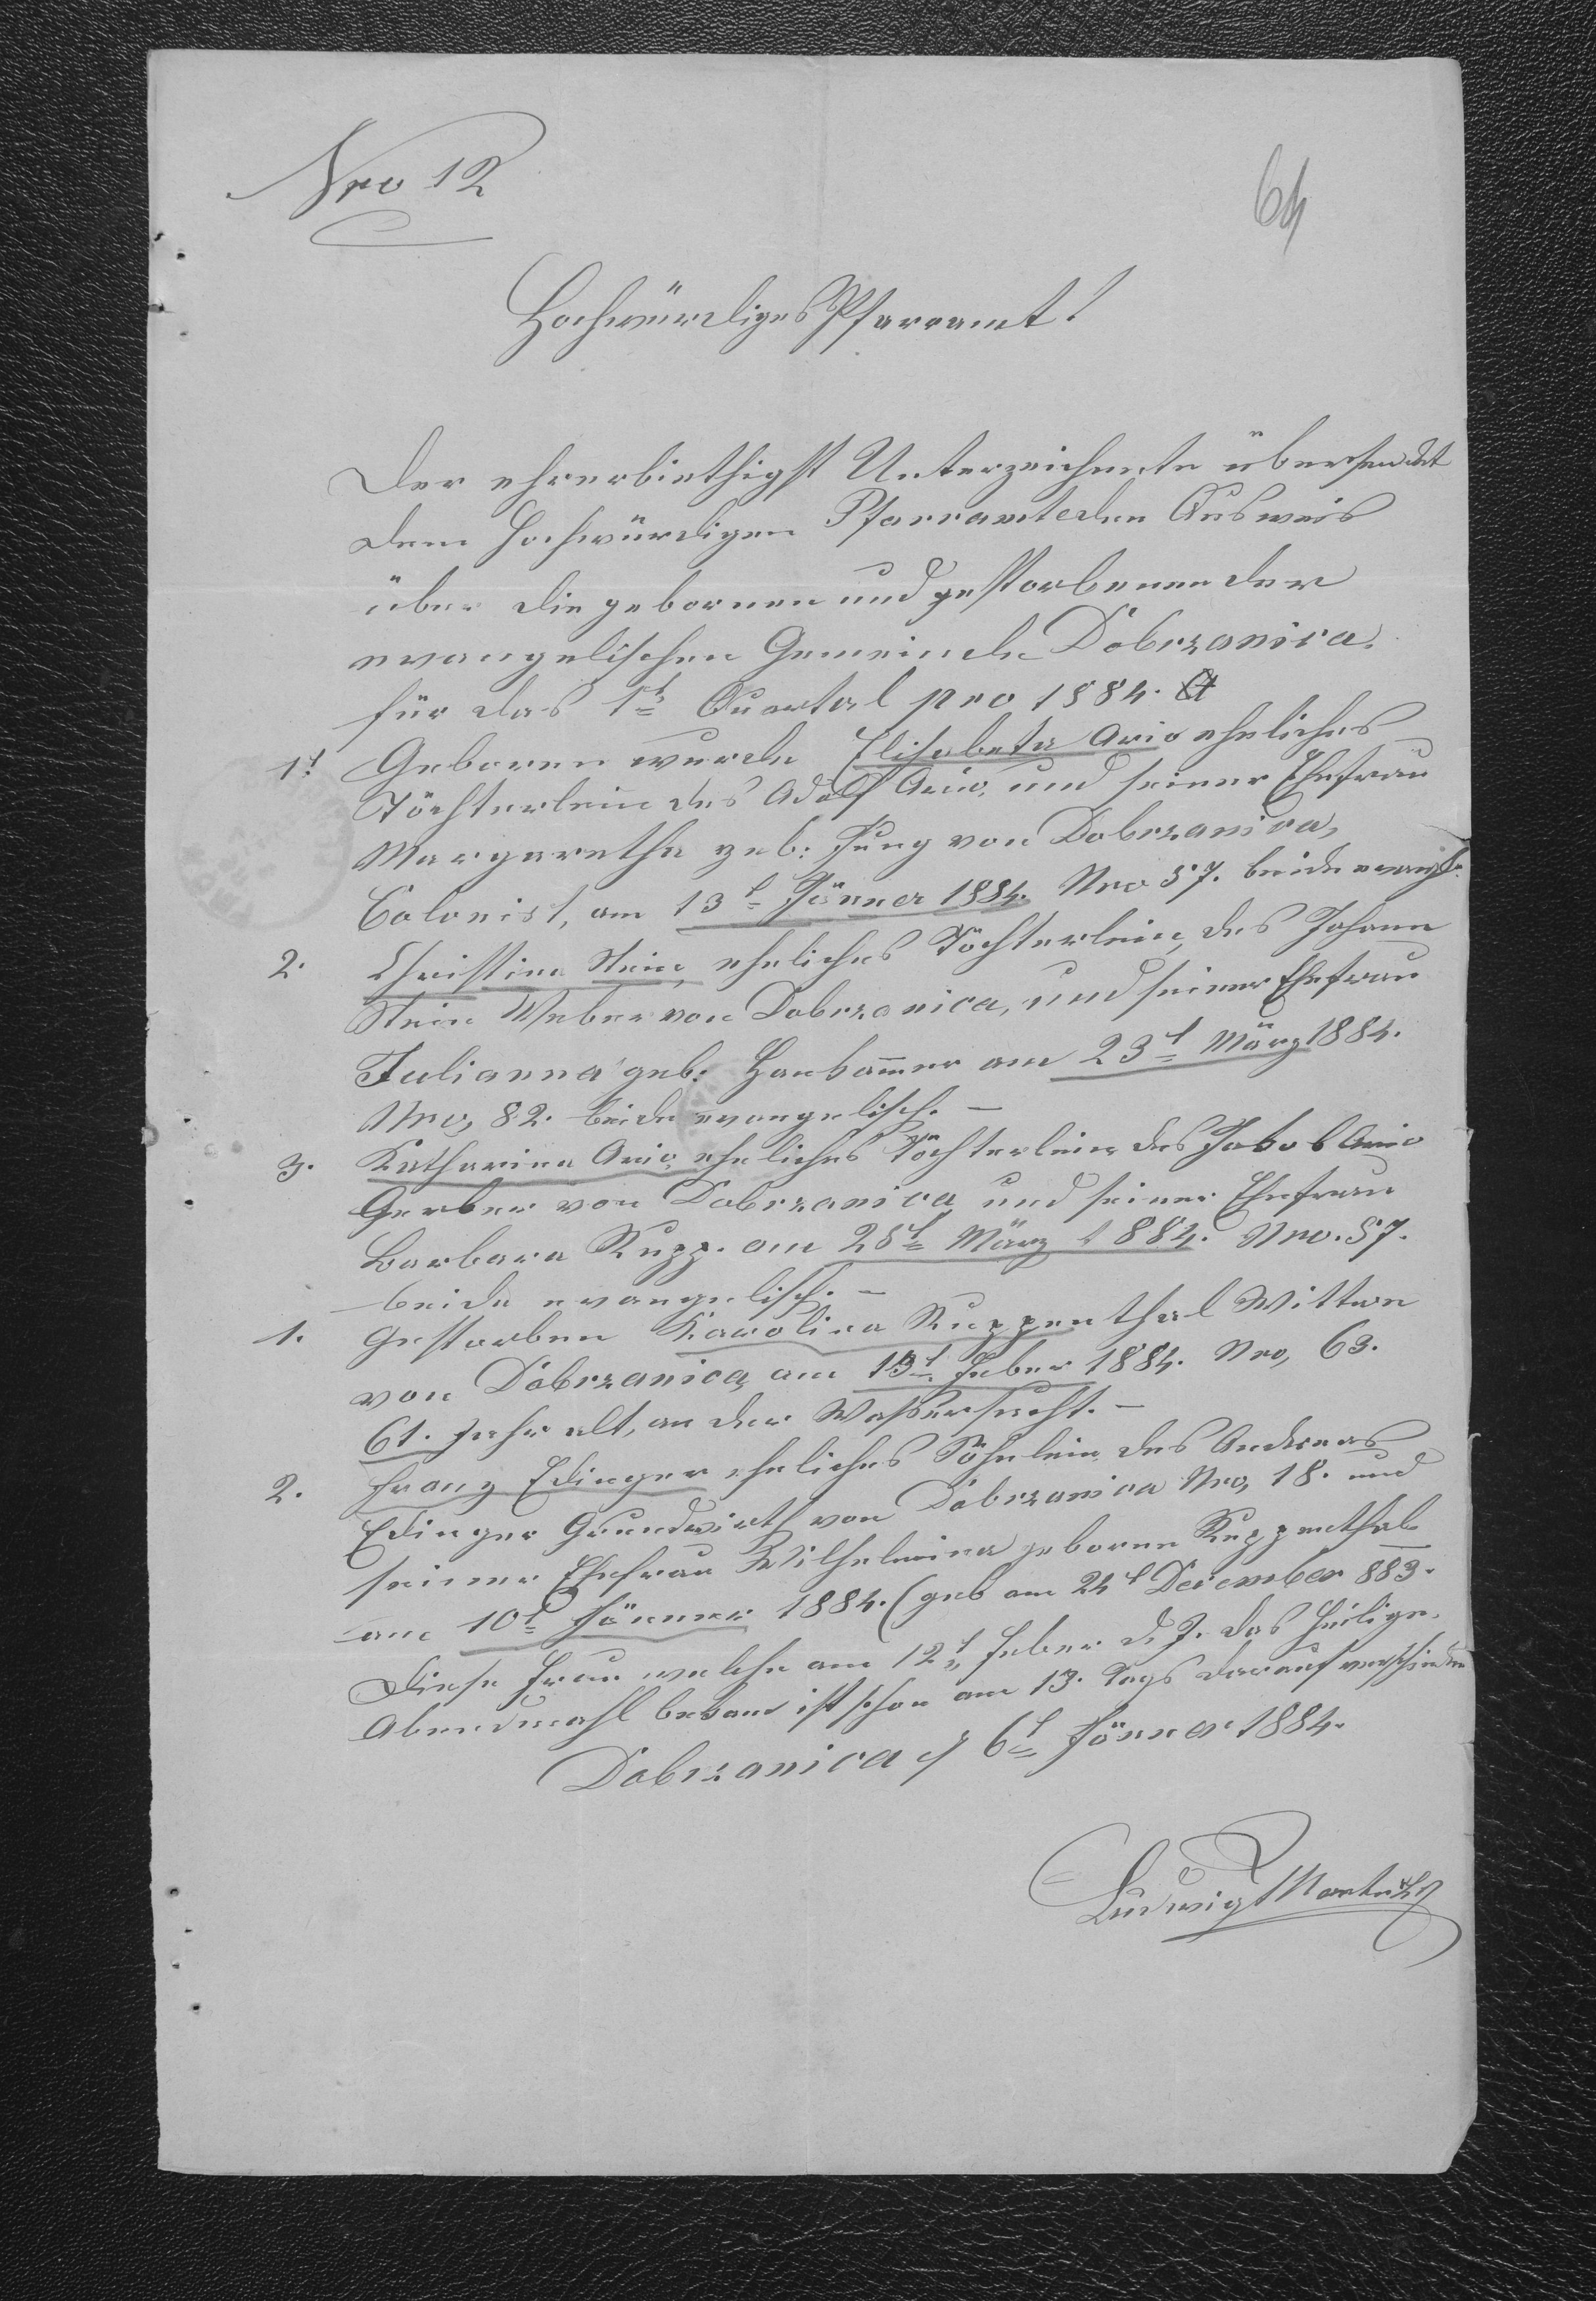 Nro 12
64
Hochwürdiges Pfarramt!
Der ehrerbiethigst Unterzeichnete übersendet
dem Hochwürdigen Pfarramte den Ausweis
über die gebornen und gestorbenen der
evangelischen Gemeinde Dobrzanica
für das 1t Quartal pro 1884.
1t Geboren wurde Elisabeta Ario eheliches
Töchterlein des Adolf Ario, und seiner Ehefrau
Margaretha geb: Jung von Dobrzanica,
Colonist, am 13t Jänner 1884. Nro 57. beide evangl.
2. Christina Stein, eheliches Töchterlein, des Johann
Stein Weber von Dobrzanica, und seiner Ehefrau
Julianna geb: am 23t März 1884.
Nro, 82. beide evangelisch. –
3. Katharina Ario, eheliches Töchterlein des Jakob Ario
Gerber von Dobrzanica und seiner Ehefrau
Barbara Rupp. am 28t März 1884. Nro. 57.
beide evangelisch. –
1. Gestorben Karolina Ruppenthal Wittwe
von Dobrzanica, am 13t Feber 1884. Nro, 63.
61. Jahr alt, an der Wassersucht. –
2. Franz Edinger eheliches Söhnlein, des Andreas
Edinger Grundwirth von Dobrzanica Nro, 18. und
seiner Ehefrau Wilhelmina geborne Ruppenthal
am 10t Jänner 1884. (geb am 24t December 883.
Diese Frau welche am 12t Feber d. J. das heilige
Abendmahl bekam ist schon am 13. Tags darauf verschieden
Dobrzanica 6t Jänner 1884.
Ludwig